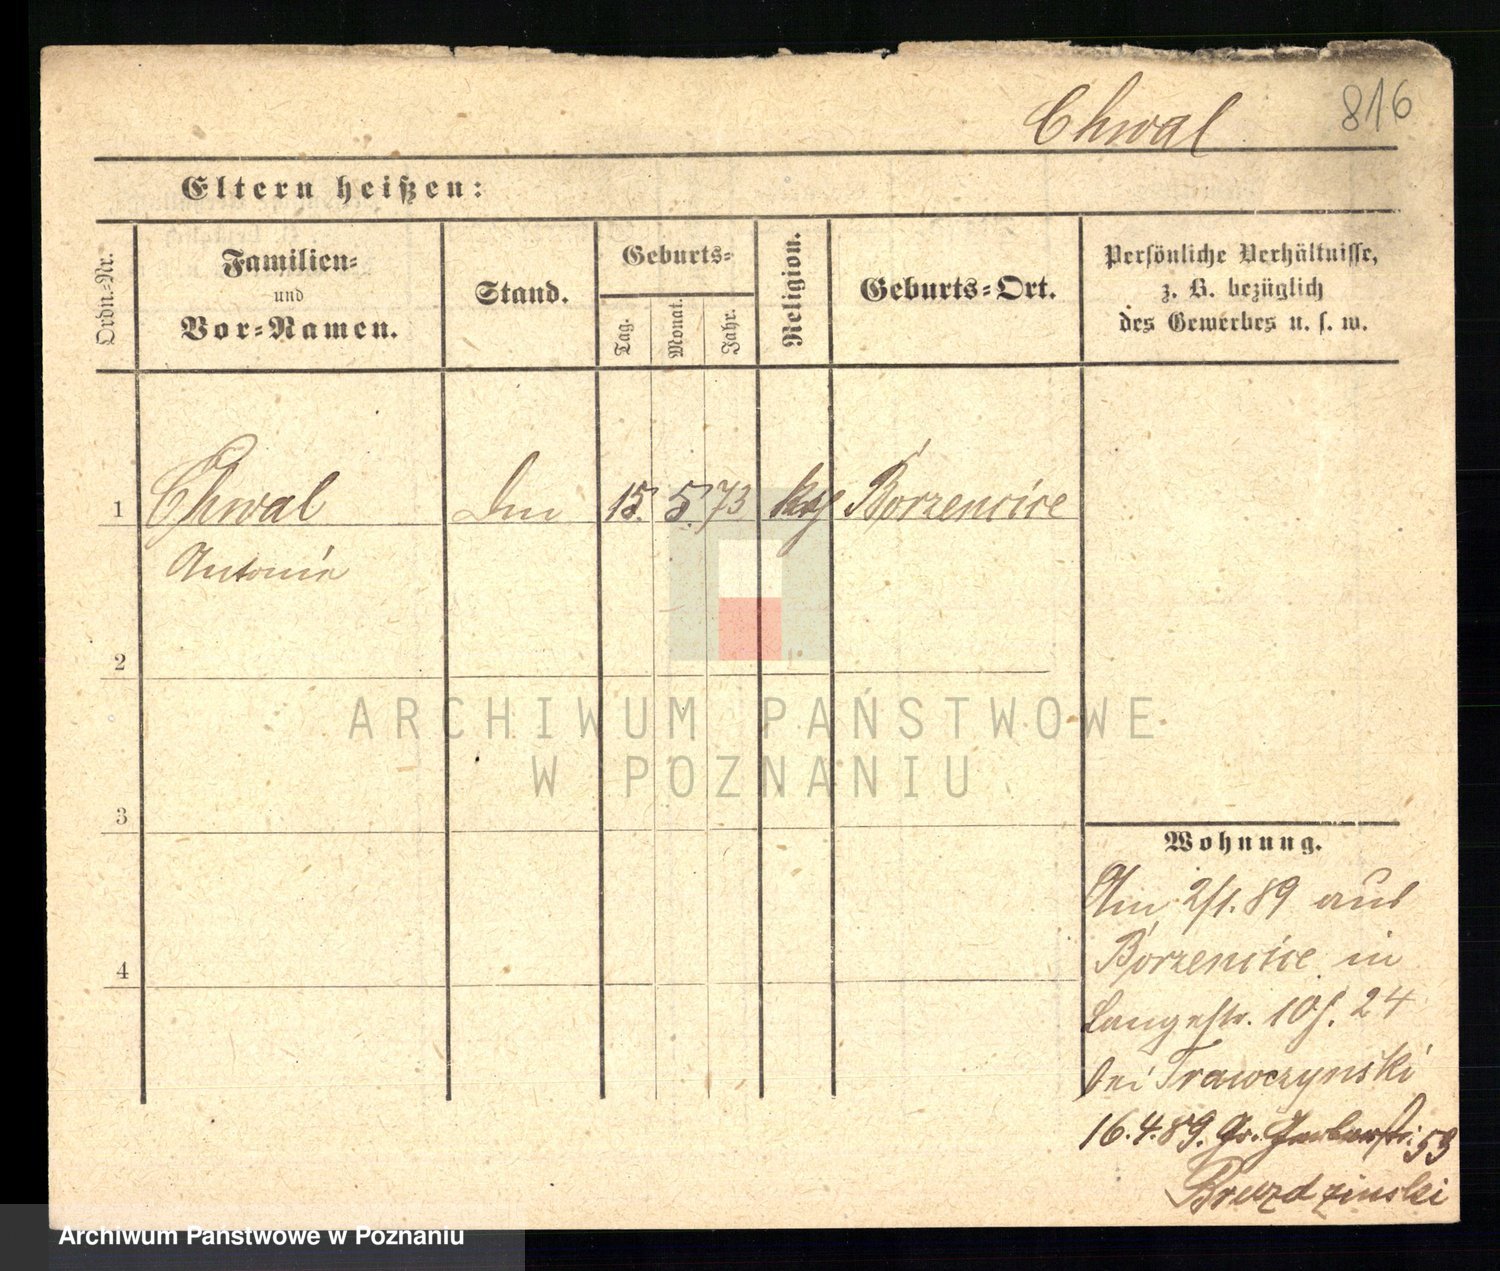 Chwal
816
Eltern heißen:
Ordn.-Nr.
Familien-
und
Vor-Namen.
Stand.
Geburts-
Tag.
Monat.
Jahr.
Religion.
Geburts-Ort.
Persönliche Verhältnisse,
z. B. bezüglich
des Gewerbes u. s. w.
1 Chwal 15. 5. 73 Borzencice
Antonie
2
3
4
Wohnung.
Am 2/1. 89 aus
Borzencice in
Langestr. 10 24
bei Trawczynski
16.4.89. Gr. Gerberstr. 53
Bruzdzinski
ARCHIWUM PAŃSTWOWE
W POZNANIU
Archiwum Państwowe w Poznaniu